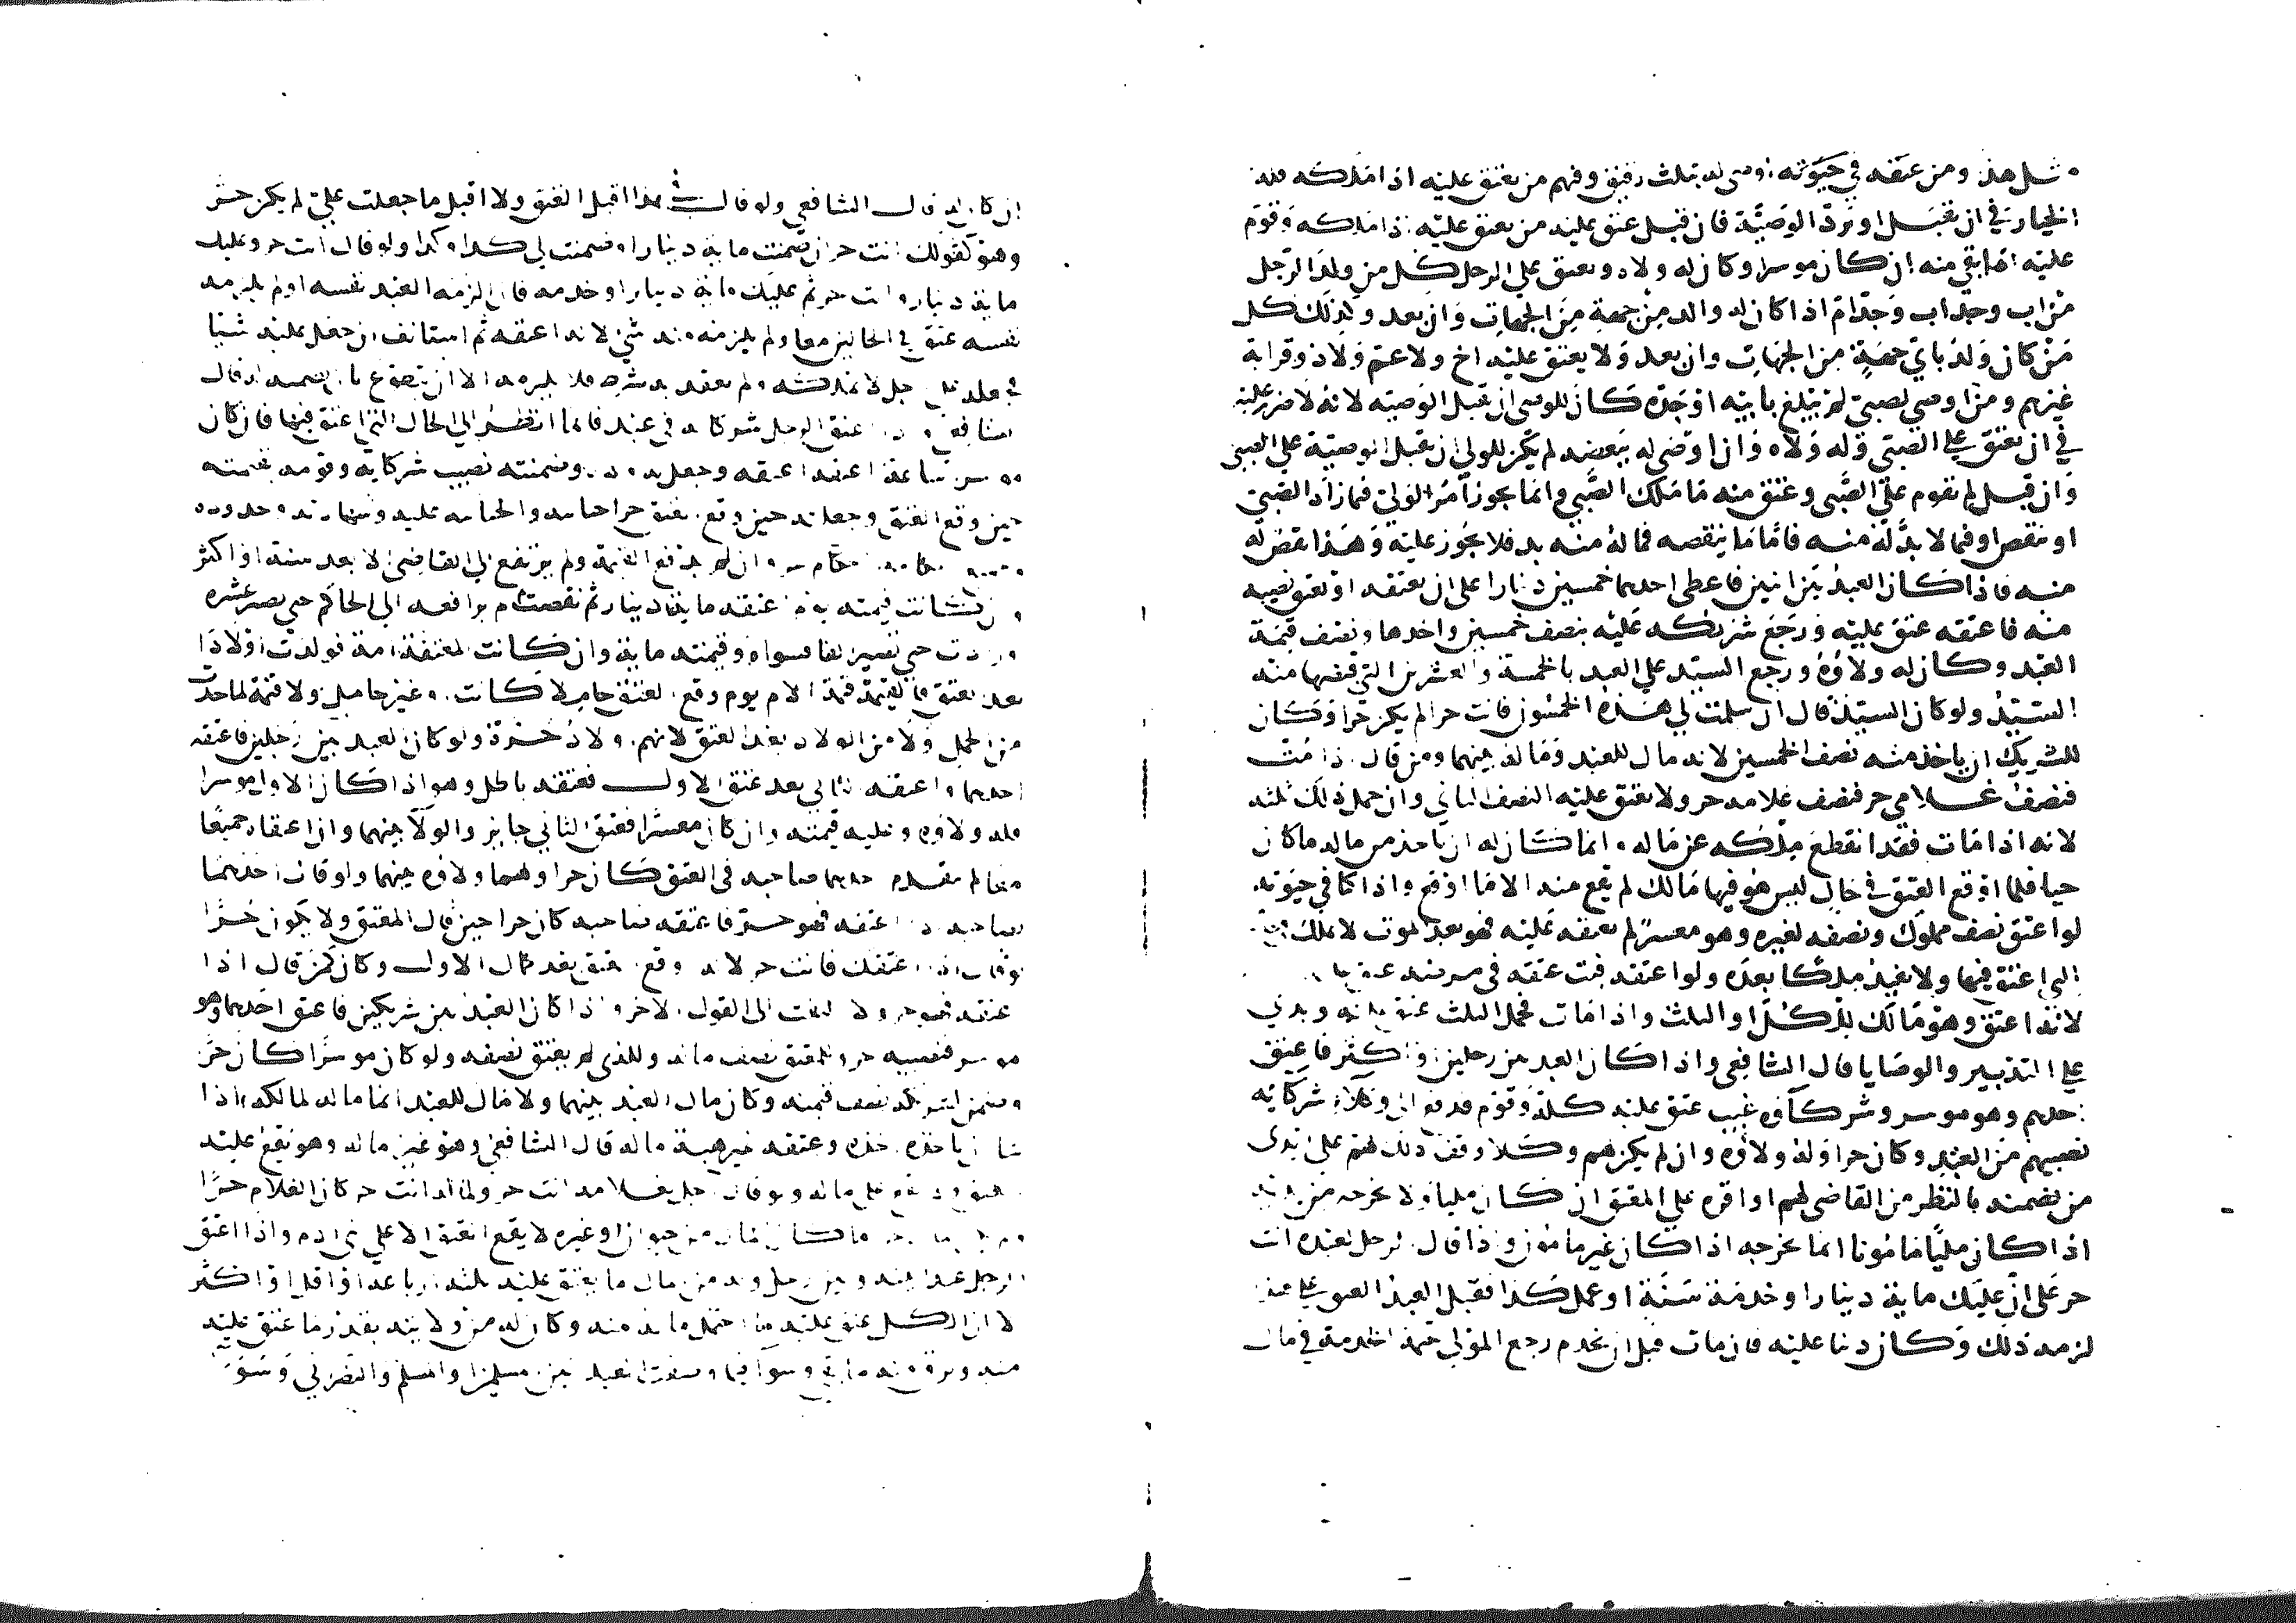 مثل هذا ومن عتقه في حيوته اوصى له بثلث رقيق وفهم من يعتق عليه اذا ملكه فله
الخيار في ان يقبل او يرد الوصية فان قبل عتق عليه من يعتق عليه اذا ملكه وقوم
عليه ما بقي منه ان كان موسرا وكان له ولاه ويعتق على الرجل كل من ولد الرجل
من اب وجد اب وجد ام اذا كان له والد من جهة من الجهات وان بعد وكذلك كل
من كان ولد باي جهة من الجهات وان بعد ولا يعتق عليه اخ ولا عم ولا ذو قرابة
غيرهم ومن اوصي لصبي لم يبلغ بابيه او جده كان للوصي ان يقبل الوصيه لانه لا ضرر عليه
في ان يعتق على الصبي وله ولاه وان اوصى له ببعضه لم يكن للولي ان يقبل الوصية على الصبي
وان قبل لم يقوم على الصبي وعتق منه ما ملك الصبي وانما يجوز امر الولي فيما زاد الصبي
او نقص او فيما لا بد له منه فاما ما ينقصه مما له منه بد فلا يجوز عليه وهذا نقص له
منه فاذا كان العبد بين اثنين فاعطى احدهما خمسين دينارا على ان يعتقه او يعتق نصيبه
منه فاعتقه عتق عليه ورجع شريكه عليه بنصف خمسين واخذها ونصف قيمة
العبد وكان له ولاؤه ورجع السيد على العبد بالخمسة والعشرين التي قبضها منه
السيد ولو كان السيد قال ان سلمت لي هذه الخمسون فانت حر لم يكن حرا وكان
للشريك ان ياخذ منه نصف الخمسين لانه مال للعبد وماله بينهما ومن قال اذا مت
فنصف غلامي حر فنصف غلامه حر ولا يعتق عليه النصف الثاني وان حمل ذلك ثلثه
لانه اذا مات فقد انقطع ملكه عن ماله وانما كان له ان ياخذ من ماله ما كان
حيا فلما اوقع العتق في حال ليس هو فيها مالك لم يقع منه الا ما اوقع واذا كنا في حيوته
لو اعتق نصف مملوك ونصفه لغيره وهو معسر لم نعتقه عليه فهو بعد الموت لا يملك في
التي اعتق فيها ولا يفيد ملكا بعده ولو اعتقه فبت عتقه في مرضه عتق
لانه اعتق وهو مالك للكل او الثلث واذا مات فحمل الثلث عتق كله وبدي
على التدبير والوصايا قال الشافعي واذا كان العبد بين رجلين او اكثر فاعتق
احدهم وهو موسر وشركاؤه غيب عتق عليه كله وقوم فدفع الى وكلاء شركائه
نصيبهم من العبد وكان حرا وله ولاؤه وان لم يكن لهم وكلاء وقف ذلك لهم على يدي
من يضمنه بالنظر من القاضي لهم او اقره على المعتق ان كان مليا ولا يخرجه من يديه
اذا كان مليا مامونا انما يخرجه اذا كان غير مامون واذا قال الرجل لعبده انت
حر على ان عليك مائة دينار او خدمة سنة او عمل كذا فقبل العبد العتق على هذا
لزمه ذلك وكان دينا عليه فان مات قبل ان يخدم رجع المولى بقيمة الخدمة في مال
ان كان له قال الشافعي ولو قال في هذا اقبل العتق ولا اقبل ما جعلت علي لم يكن حر
وهو كقولك انت حر ان ضمنت مائة دينار او ضمنت لي كذا وكذا ولو قال انت حر وعليك
مائة دينار وانت حر ثم عليك مائة دينار او خدمه فان الزمه العبد نفسه او لم يلزمه
نفسه عتق في الحالين معا ولم يلزمه منه شي لانه اعتقه ثم استانف ان جعل عليه شيا
فجعله على رجل لا يملكه ولم يعقد به شرط فلا يلزمه الا ان يتطوع بان يضمنه له قال
الشافعي واذا اعتق الرجل شركا له في عبد فانما انظر الى الحال التي اعتق فيها فان كان
موسرا ساعة اعتقه اعتقه وجعل له ولاه وضمنته نصيب شركائه وقومه بقيمته
حين وقع العتق وجعلته حين وقع العتق حرا جنايته والجناية عليه وشهادته وحدوده
وجميع احكامه احكام حر وان لم يدفع القيمة ولم يرتفع الى القاضي الا بعد سنة او اكثر
وان كانت قيمته يوم اعتقه مائة دينار ثم نقصت ثم يرافعه الى الحاكم حتى يصير عشره
وزادت حتى تصير الفا فسواء وقيمته مائة وان كانت المعتقة امة فولدت اولادا
بعد العتق فالقيمة قيمة الام يوم وقع العتق حاملا كانت او غير حامل ولا قيمة لما حدث
من الحمل ولا من الولاد بعد العتق لانهم اولاد حرة ولو كان العبد بين رجلين فاعتقه
احدهما واعتقه الثاني بعد عتق الاول فعتقه باطل وهو اذا كان الاول موسرا
فله ولاؤه وعليه قيمته وان كان معسرا فعتق الثاني جايز والولاء بينهما وان اعتقاه جميعا
معا لم يتقدم احدهما صاحبه في العتق كان حرا ولهما ولاؤه بينهما ولو قال احدهما
لصاحبه اذا اعتقه فهو حر فاعتقه صاحبه كان حرا حين قال المعتق ولا يكون حرا
لو قال اذا اعتقك فانت حر لانه وقع العتق بعد كمال الاول وكان كمن قال اذا
عتقه فهو حر ولا يلتفت الى القول الاخر واذا كان العبد بين شريكين فاعتق احدهما وهو
معسر فنصيبه حر وللمعتق نصف ماله وللذي لم يعتق نصفه ولو كان موسرا كان حر
وضمن لشريكه نصف قيمته وكان مال العبد بينهما ولا مال للعبد انما ماله لمالكه اذا
شا ان ياخذه اخذه وعتقه غير هبة ماله قال الشافعي وهو غير ماله وهو يقع عليه
العتق ولا يقع على ماله ولو قال رجل لغلامه انت حر ولماله انت حر كان الغلام حرا
ولم يكن المال حرا ما كان المال من حيوان او غيره لا يقع العتق الا على بني ادم واذا اعتق
الرجل عبدا بينه وبين رجل وله من المال ما يعتق عليه ثلثه ارباعه او اقل او اكثر
لا ان الكل عتق عليه ما احتمل ماله منه وكان له من ولايه بقدر ما عتق عليه
منه ورق منه ما بقي وسواء فيما وصفت العبد بين مسلمين او المسلم والنصراني وسواء